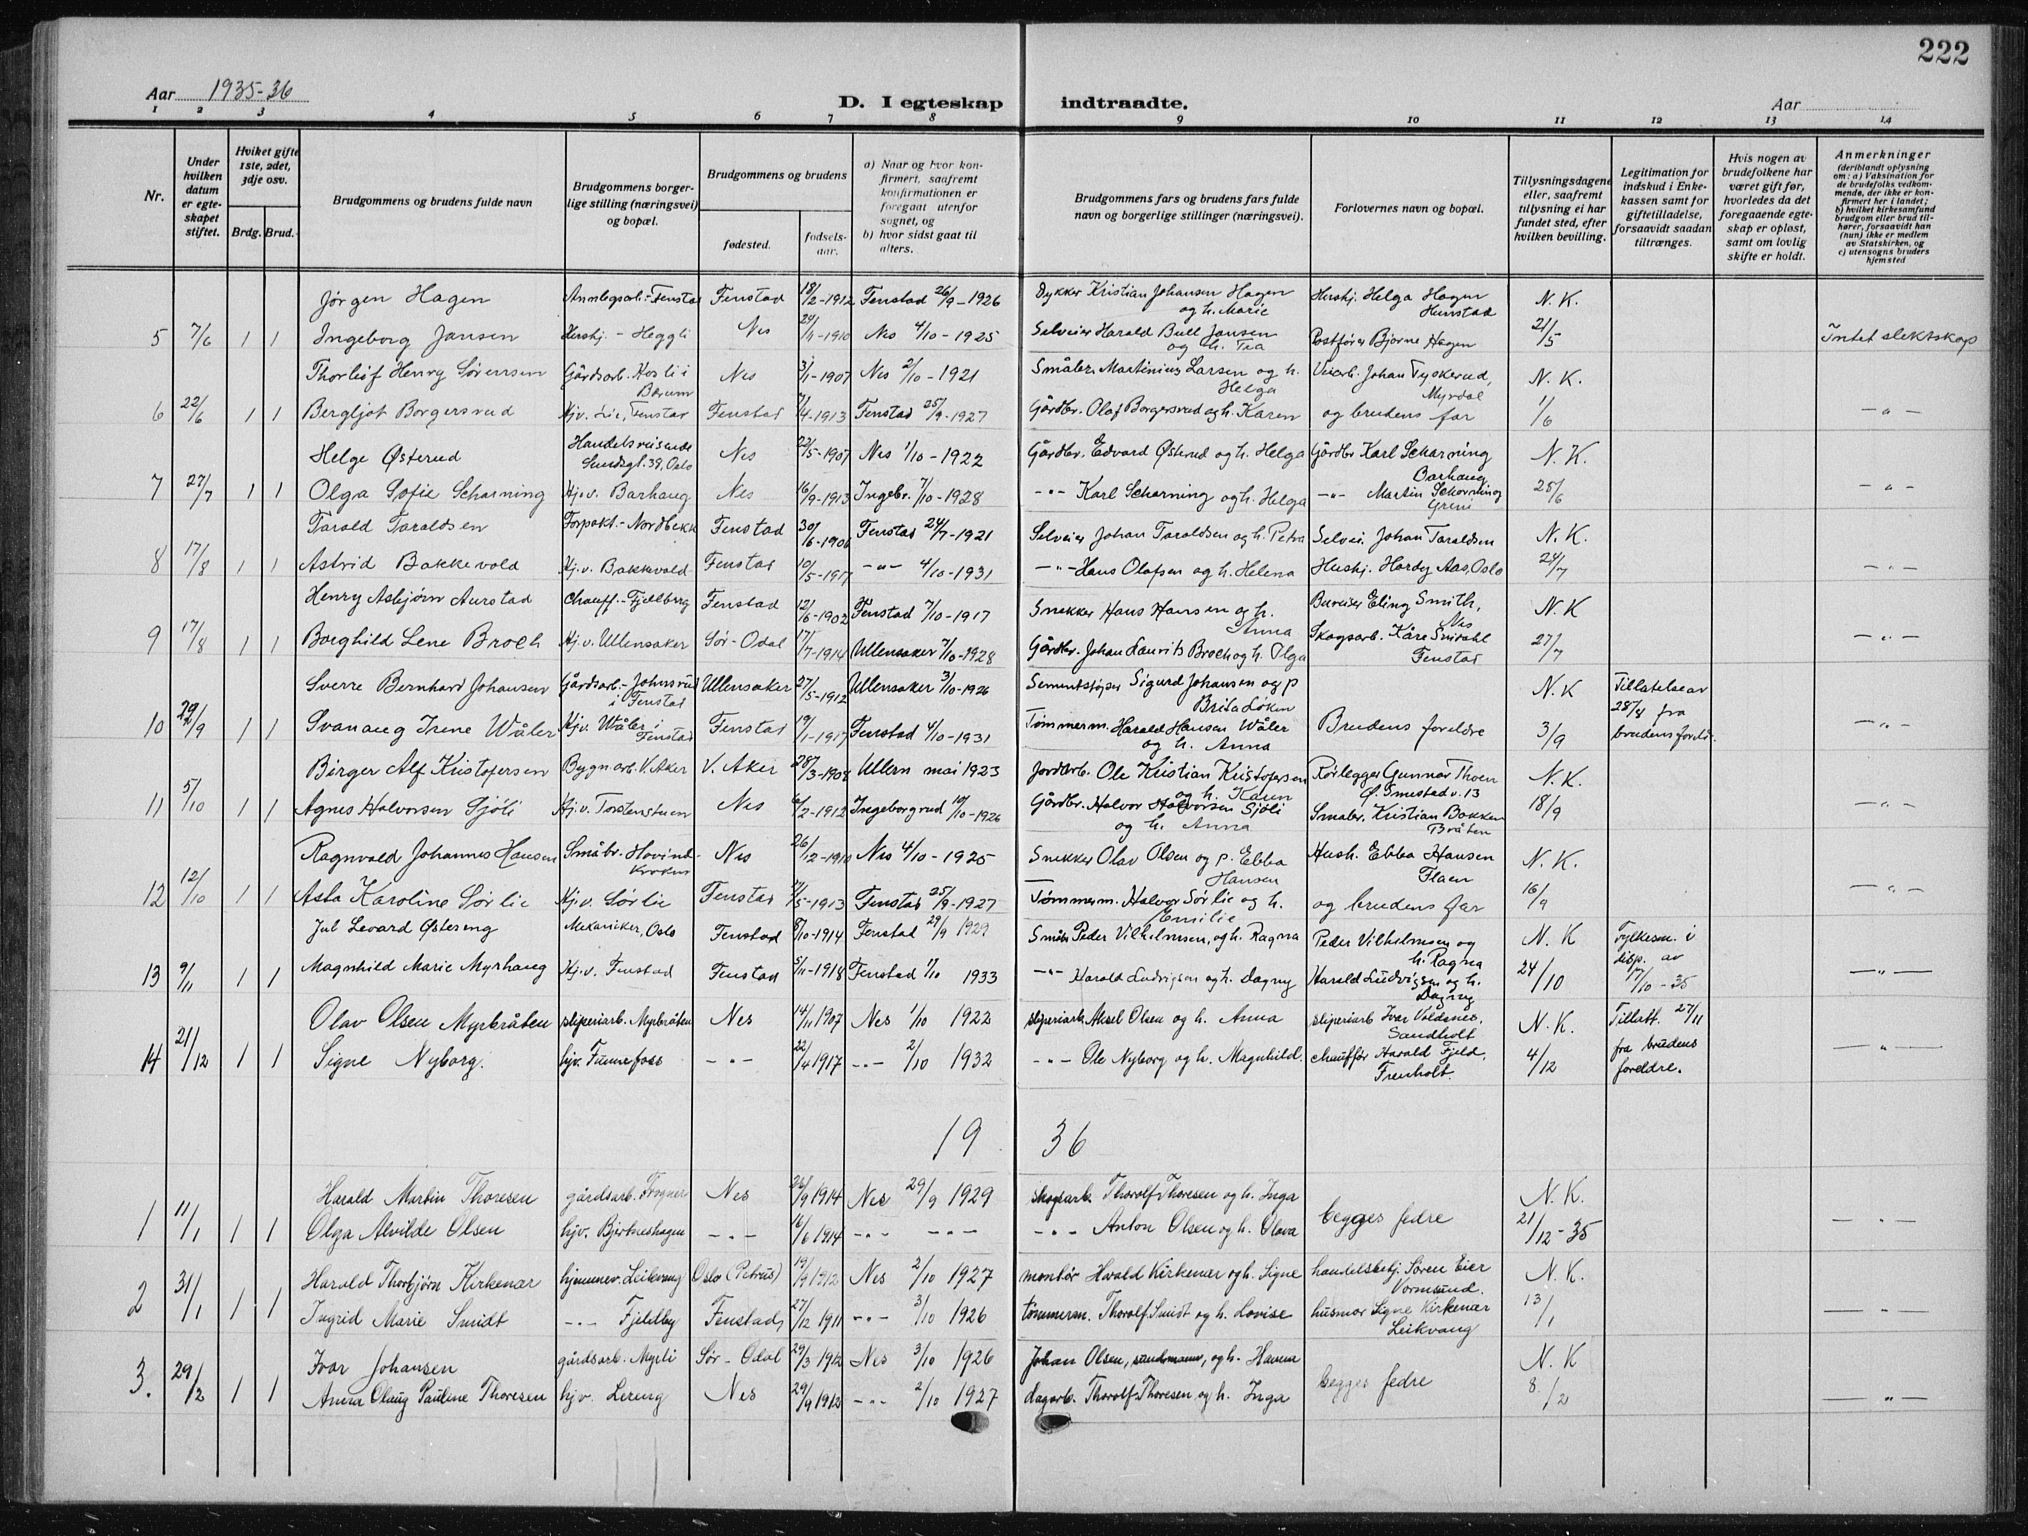 222
Aar 1935-36
D. I egteskap indtraadte.
Aar
1 2 3 4 5 6 7 8 9 10 11 12 13 14
Nr.
Under hvilken datum er egteskapet stiftet.
Hviket gifte 1ste, 2det, 3dje osv.
Brdg. Brud.
Brudgommens og brudens fulde navn
Brudgommens borgerlige stilling (næringsvei) og bopæl.
Brudgommens og brudens
fødested.
fødselsaar.
a) Naar og hvor konfirmert, saafremt konfirmationen er foregaat utenfor sognet, og
b) hvor sidst gaat til alters.
Brudgommens fars og brudens fars fulde navn og borgerlige stillinger (næringsvei).
Forlovernes navn og bopæl.
Tillysningsdagene eller, saafremt tillysning ei har fundet sted, efter hvilken bevilling.
Legitimation for indskud i Enkekassen samt for giftetilladelse, forsaavidt saadan tiltrænges.
Hvis nogen av brudefolkene har været gift før, hvorledes da det foregaaende egteskap er opløst, samt om lovlig skifte er holdt.
Anmerkninger (deriblandt oplysning om: a) Vaksination for de brudefolks vedkommende, der ikke er konfirmert her i landet; b) hvilket kirkesamfund brudgom eller brud tilhører, forsaavidt han (hun) ikke er medlem av Statskirken, og c) utensogns bruders hjemsted
Jørgen Hagen Anlegsarb.-Fenstad Fenstad 18/2-1912 Fenstad 26/9-1926 Dykker Kristian Johansen Hagen og h. Marie Hushj. Helga Hagen Hunstad N. K.
5 7/6 1 1 Ingeborg Jansen Hushj. - Heggli Nes 24/11-1910 Nes 4/10-1925 Selveier Harald Bull Jansen og h. Tea Postfører Bjarne Hagen 21/5 Intet slektskap
Thorleif Henry Sørensen Gårdsarb. Hosli i Bærum Nes 3/1-1907 Nes 2/10-1921 Småbr. Martinius Larsen og h. Helga Johan Tyskerud, Myrdal N. K.
6 22/6 1 1 Bergljot Borgersrud Hjv. Lie, Fenstad Fenstad 7/4-1913 Fenstad 25/9-1927 Gårdbr. Olaf Borgersrud og h. Karen og brudens far 1/6 -"-
Helge Østerud Handelsreisende 39, Oslo Nes 22/5-1907 Nes 1/10-1922 Gårdbr. Edvard Østerud og h. Helga Gårdbr Karl Scharning Barhaug N. K.
7 27/7 1 1 Olga Sofie Scharning Hj.v. Barhaug Nes 16/9-1913 Ingebr. 7/10-1928 -"- Karl Scharning og h. Helga -"- Martin Scharning Greni 28/6 -"-
Tarald Taraldsen Forpakt.-Nordbekk Fenstad 30/6-1906 Fenstad 24/7-1921 Selveier Johan Taraldsen og h. Petra Selvei. Johan Taraldsen N. K.
8 17/8 1 1 Astrid Bakkevold Hj.v. Bakkvold Fenstad 10/5-1917 -"- 4/10-1931 -"- Hans Olafsen og h. Helena Hushj. Hardy Aas, Oslo 24/7 -"-
Henry Asbjørn Aurstad Chauff.-Fjellberg Fenstad 12/6-1902 Fenstad 7/10-1917 Snekker Hans Hansen og h. Anna Bureiser Eling Smith, Nes N. K
9 17/8 1 1 Borghild Lene Broch Hj.v. Ullensaker Sør-Odal 17/7-1914 Ullensaker 7/10-1928 Gårdbr. Johan Laurits Broch og h. Olga Skogsarb. Kåre Fenstad 27/7 -"-
Sverre Bernhard Johansen Gårdsarb.-Johnsrud i Fenstad Ullensaker 27/5-1912 Ullensaker 3/10-1926 Sementstøper Sigurd Johansen og p Brita Løken N. K Tillatelse av 28/8 fra brudens foreldr.
10 29/9 1 1 Svanaug Irene Wåler Hjv. Wåler i Fenstad Fenstad 19/1-1917 Fenstad 4/10-1931 Tømmerm. Harald Hansen Wåler og h. Anna Brudens foreldre 3/9 -"-
Birger Alf Kristofersen Bygnarb. V. Aker V. Aker 28/3-1908 Ullern mai 1923 Jordarb. Ole Kristian Kristofersen og h. Karen Rørlegger Gunnar Thoen Ø. Smestad v. 13 N. K.
11 5/10 1 1 Agnes Halvorsen Sjøli Hj.v. Torstenstuen Nes 6/2-1912 Ingeborgrud 10/10-1926 Gårdbr. Halvor Halvorsen Sjøli og h. Anna Småbr. Kristian Bakken Bråten 18/9 -"-
Ragnvald Johannes Hansen Småbr. Hovind- Nes 26/12-1910 Nes 4/10-1925 Snekker Olav Olsen og p. Ebba Hansen Hush. Ebba Hansen Flaen N. K.
12 12/10 1 1 Asta Karoline Sørlie Hjv. Sørlie Fenstad 7/5-1913 Fenstad 25/9-1927 Tømmerm. Halvor Sørlie og h. Emilie og brudens far 16/9 -"-
Jul Levard Østereng Mekaniker, Oslo Fenstad 8/10-1914 Fenstad 29/9 1929 Småbr Peder Vilhelmsen, og h. Ragna Peder Vilhelmsen og h. Ragna N. K Fylkesm. i disp. av 17/10-35
13 9/11 1 1 Magnhild Marie Myrhaug Hj.v. Fenstad Fenstad 5/11-1918 Fenstad 1/10 1933 -"- Harald Ludvigsen og h. Dagny Harald Ludvigsen og h. Dagny 24/10 -"-
Olav Olsen Myrbråten sliperiarb. Myrbråten Nes 14/11 1907 Nes 1/10 1922 sliperiarb. Aksel Olsen og h. Anna sliperiarb Ivar Valdsnes, Sandholt N. K. Tillatt. 27/11 fra brudens foreldre.
14 21/12 1 1 Signe Nyborg. hjv. Funnefoss -"- 22/4 1917 -"- 2/10 1932 -"- Ole Nyborg og h. Magnhild. chauffør Harald Fjeld, Frenholt. 4/12 -"-
1936
Harald Martin Thoresen gårdsarb. Frogner Nes 26/9 1914 Nes 29/9 1929 skogsarb. Thorolf Thoresen og h. Inga begges fedre N. K.
1 11/1 1 1 Olga Alvilde Olsen hjv. Bjerkneshagen -"- 16/6 1914 -"- -"- -"- Anton Olsen og h. Olava 21/12-35 -"-
Harald Thorbjørn Kirkenær hjemmev. Leikvang Oslo (Petrus) 19/9 1912 Nes 2/10 1927 montør Harald Kirkenær og h. Signe handelsbetj. Søren Eier Vormsund. N. K.
2 31/1 1 1 Ingrid Marie Smidt -"- Fjellby Fenstad, 27/12 1911 -"- 3/10 1926 tømmerm. Thorolf Smidt og h. Lovise husmor Signe Kirkenær Leikvang 13/1 -"-
Ivar Johansen gårdsarb. Myrli Sør-Odal 29/3 1912 Nes 3/10 1926 Johan Olsen, sundmann, og h. Hanna begges fedre N. K
3. 29/2 1 1 Anna Olaug Pauline Thoresen hjv. Lereng Nes 29/9 1912 -"- 2/10 1927 dagarb. Thorolf Thoresen og h. Inga 8/2 -"-